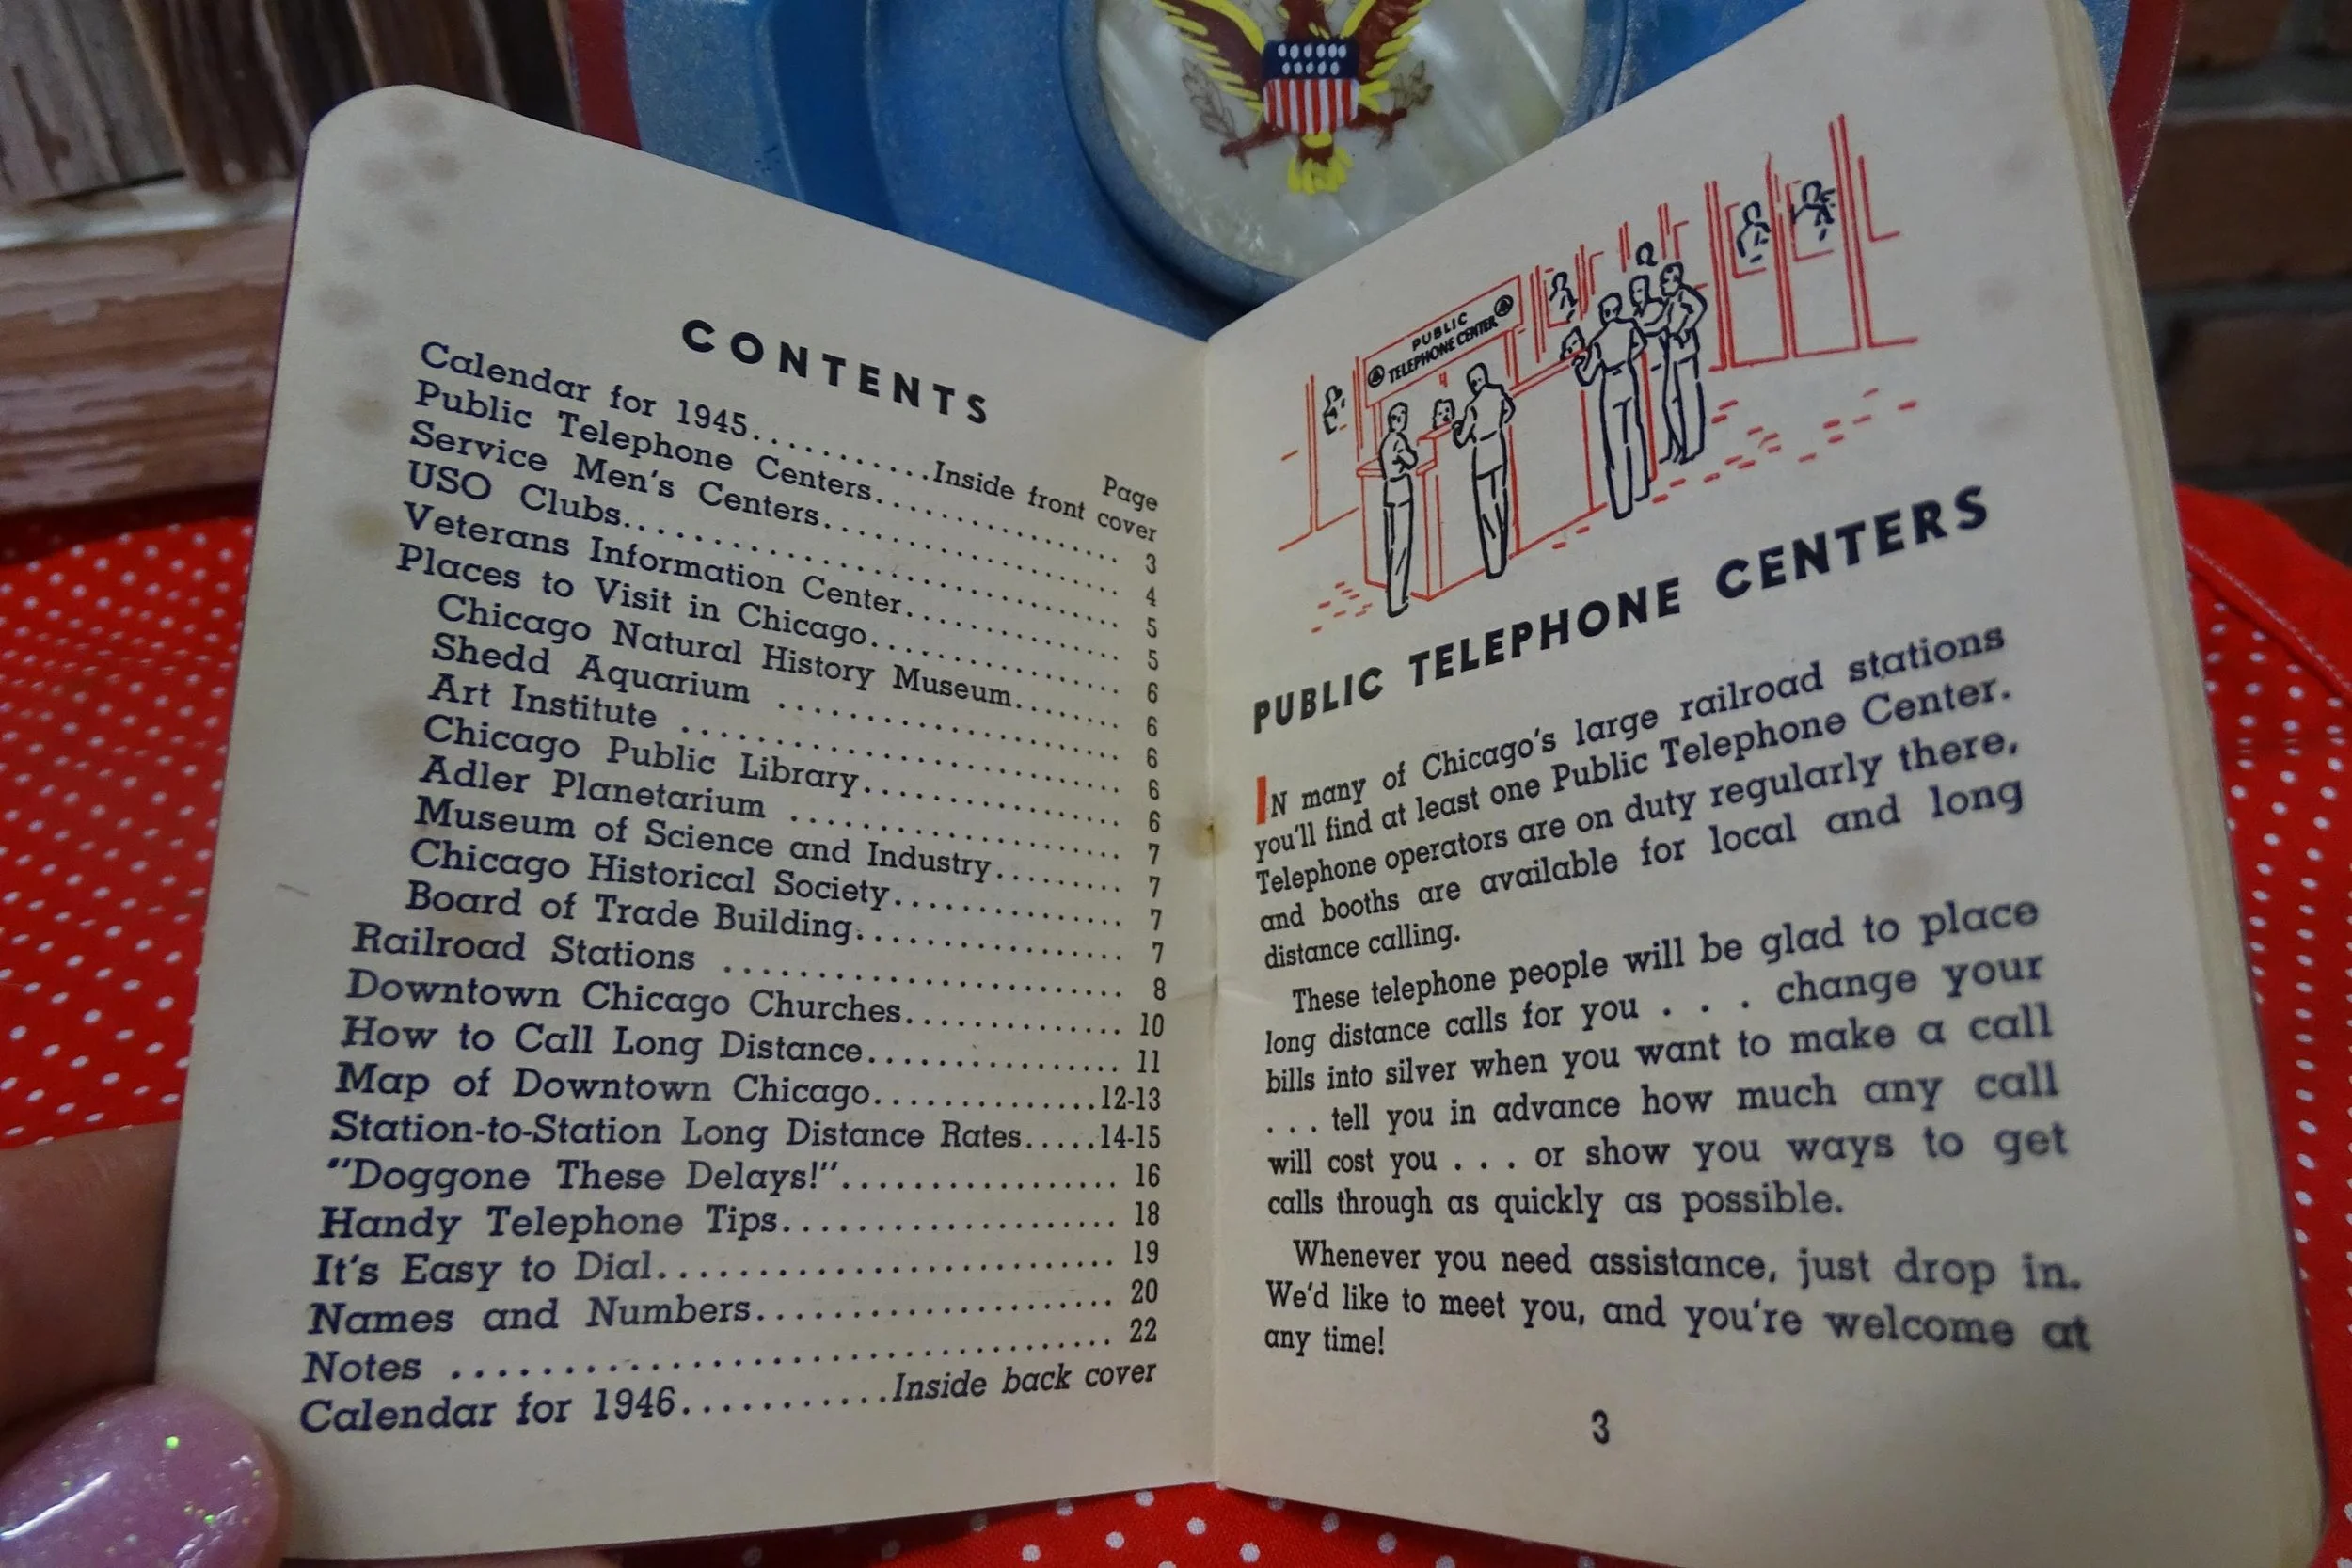 CONTENTS
Page
Calendar for 1945..........Inside front cover
Public Telephone Centers............... 3
Service Men's Centers.................. 4
USO Clubs.............................. 5
Veterans Information Center............ 5
Places to Visit in Chicago............. 6
Chicago Natural History Museum........ 6
Shedd Aquarium ..................... 6
Art Institute ........................ 6
Chicago Public Library................ 6
Adler Planetarium ................... 7
Museum of Science and Industry......... 7
Chicago Historical Society.............. 7
Board of Trade Building................ 7
Railroad Stations ........................ 8
Downtown Chicago Churches.............. 10
How to Call Long Distance................ 11
Map of Downtown Chicago..............12-13
Station-to-Station Long Distance Rates.....14-15
"Doggone These Delays!".................. 16
Handy Telephone Tips...................... 18
It's Easy to Dial........................... 19
Names and Numbers..................... 20
Notes ....................................... 22
Calendar for 1946...........Inside back cover
PUBLIC
TELEPHONE CENTER
PUBLIC TELEPHONE CENTERS
IN many of Chicago's large railroad stations
you'll find at least one Public Telephone Center.
Telephone operators are on duty regularly there,
and booths are available for local and long
distance calling.
These telephone people will be glad to place
long distance calls for you . . . change your
bills into silver when you want to make a call
. . . tell you in advance how much any call
will cost you . . . or show you ways to get
calls through as quickly as possible.
Whenever you need assistance, just drop in.
We'd like to meet you, and you're welcome at
any time!
3